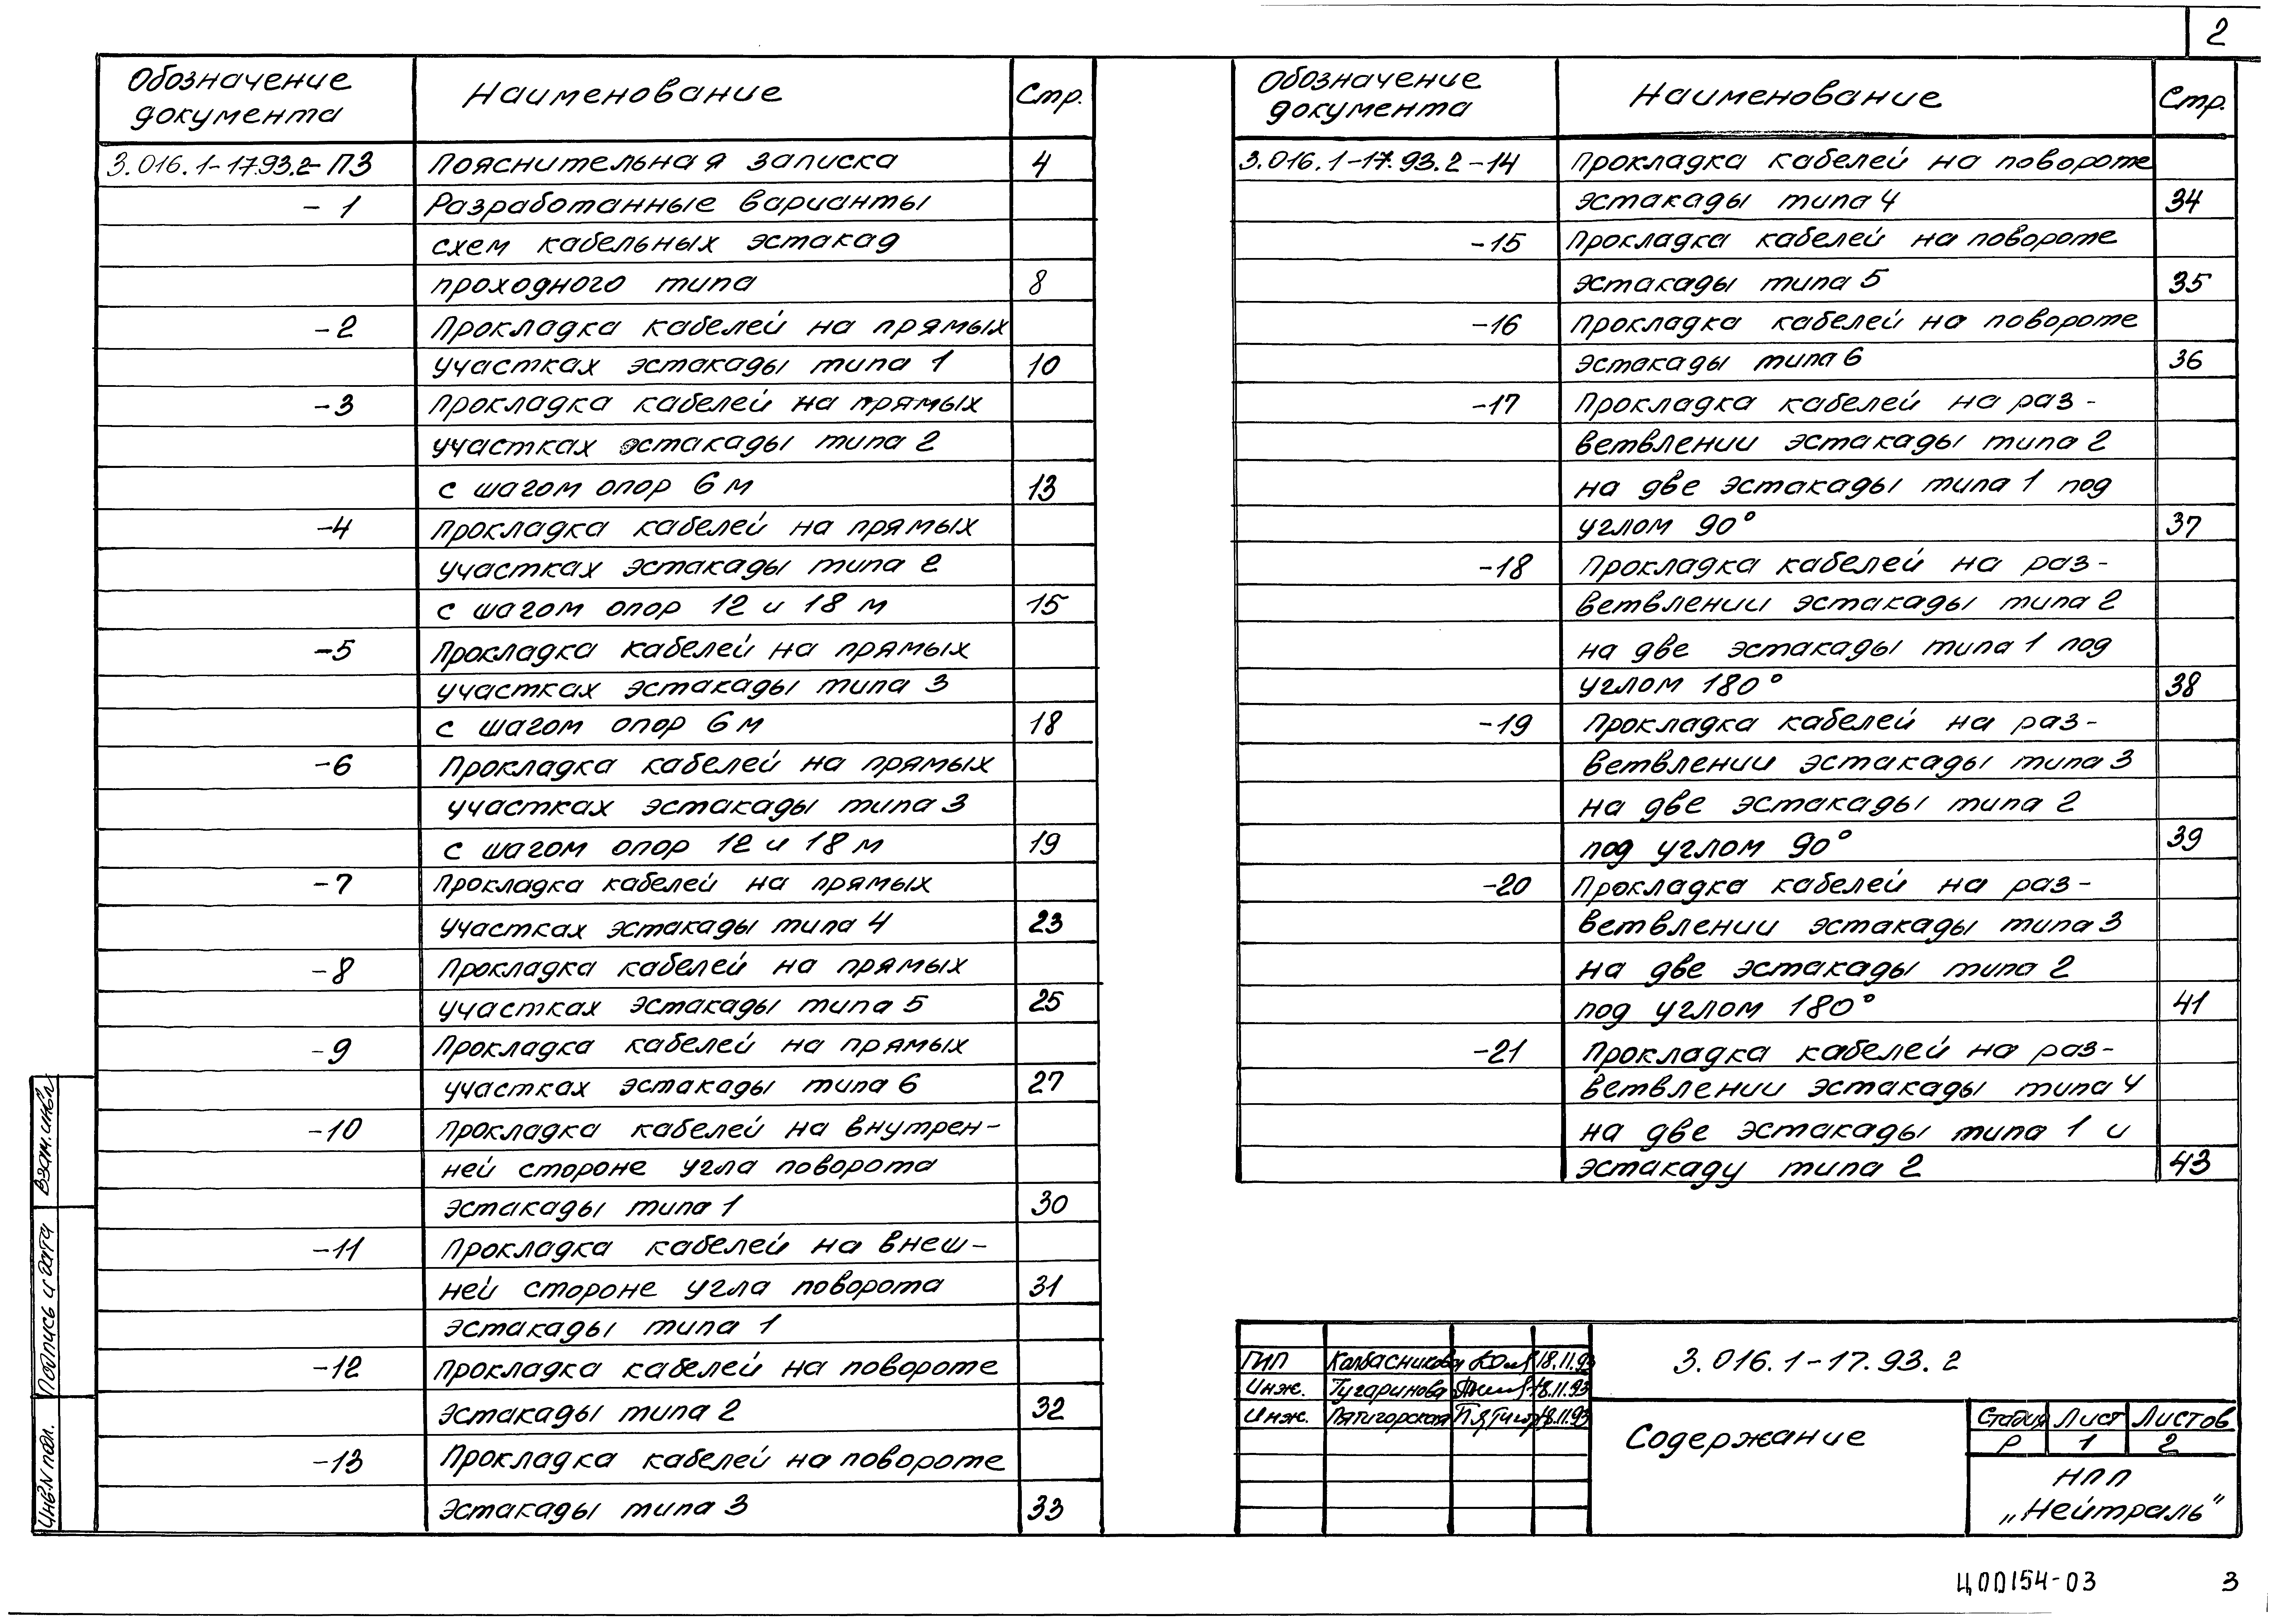 2
Обозначение
документа
Наименование
Стр.
3.016.1-17.93.2-ПЗ Пояснительная записка 4
-1 Разработанные варианты
схем кабельных эстакад
проходного типа 8
-2 Прокладка кабелей на прямых
участках эстакады типа 1 10
-3 Прокладка кабелей на прямых
участках эстакады типа 2
с шагом опор 6 м 13
-4 Прокладка кабелей на прямых
участках эстакады типа 2
с шагом опор 12 и 18 м 15
-5 Прокладка кабелей на прямых
участках эстакады типа 3
с шагом опор 6 м 18
-6 Прокладка кабелей на прямых
участках эстакады типа 3
с шагом опор 12 и 18 м 19
-7 Прокладка кабелей на прямых
участках эстакады типа 4 23
-8 Прокладка кабелей на прямых
участках эстакады типа 5 25
-9 Прокладка кабелей на прямых
участках эстакады типа 6 27
-10 Прокладка кабелей на внутрен-
ней стороне угла поворота
эстакады типа 1 30
-11 Прокладка кабелей на внеш-
ней стороне угла поворота 31
эстакады типа 1
-12 Прокладка кабелей на повороте
эстакады типа 2 32
-13 Прокладка кабелей на повороте
эстакады типа 3 33
Обозначение
документа
Наименование
Стр.
3.016.1-17.93.2-14 Прокладка кабелей на повороте
эстакады типа 4 34
-15 Прокладка кабелей на повороте
эстакады типа 5 35
-16 Прокладка кабелей на повороте
эстакады типа 6 36
-17 Прокладка кабелей на раз-
ветвлении эстакады типа 2
на две эстакады типа 1 под
углом 90° 37
-18 Прокладка кабелей на раз-
ветвлении эстакады типа 2
на две эстакады типа 1 под
углом 180° 38
-19 Прокладка кабелей на раз-
ветвлении эстакады типа 3
на две эстакады типа 2
под углом 90° 39
-20 Прокладка кабелей на раз-
ветвлении эстакады типа 3
на две эстакады типа 2
под углом 180° 41
-21 Прокладка кабелей на раз-
ветвлении эстакады типа 4
на две эстакады типа 1 и
эстакаду типа 2 43
Взам.инв.№
Подпись и дата
Инв.N подл.
ГИП Колбасникова 18.11.93
Инж. Тугаринова 18.11.93
Инж. Пятигорская 18.11.93
3.016.1-17.93.2
Содержание
Стадия Лист Листов
Р 1 2
НПП
„Нейтраль"
Ц00154-03 3